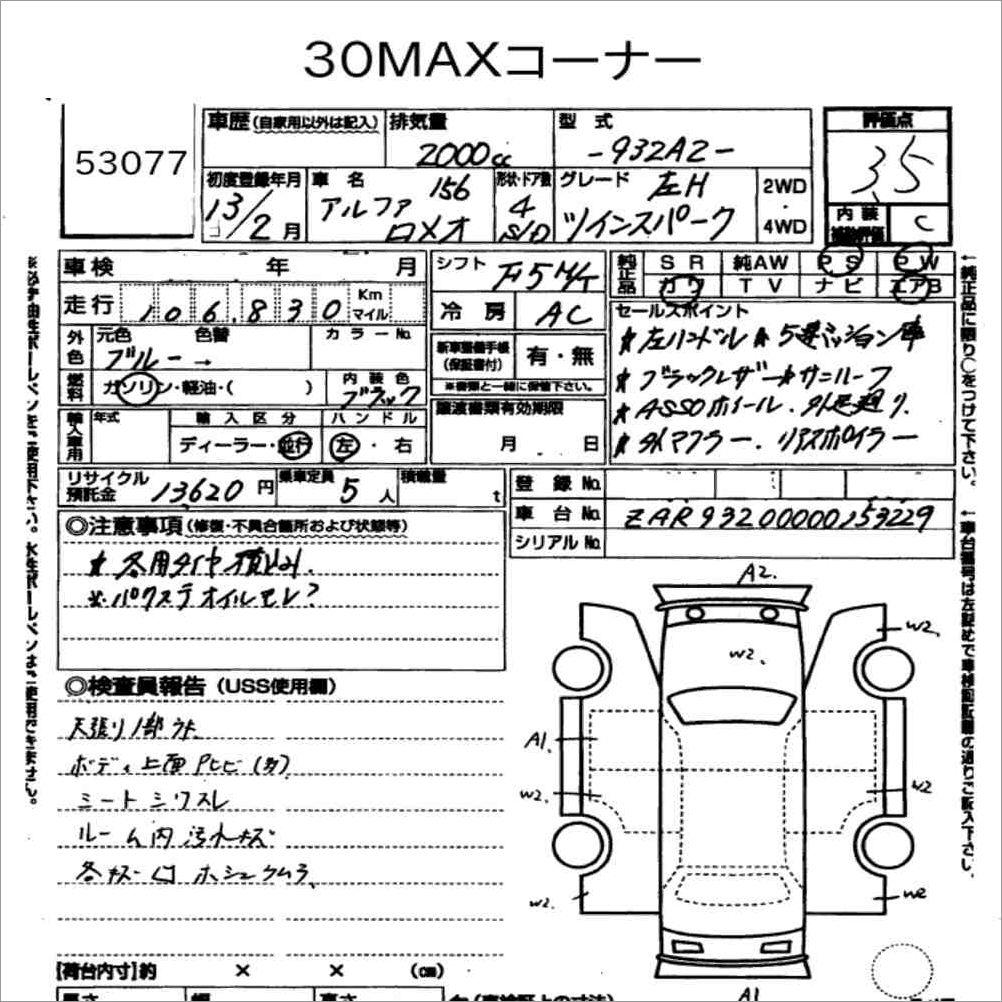 30MAXコーナー
53077
車歴 (自家用以外は記入) 排気量 2000cc 型式 -932A2- 評価点 3.5
初度登録年月 13/2月 車名 アルファロメオ 156 形状・ドア数 4 S/D グレード 左H ツインスパーク 2WD・4WD 内装補助評価 C
車検 年 月 シフト F5M/T 純正品 SR 純AW PS PW
走行 106,830 Km マイル 冷房 AC カワ TV ナビ エアB
外色 元色 ブルー→ 色替 カラーNo. 新車整備手帳 (保証書付) 有・無
※書類と一緒に保管下さい。
燃料 ガソリン・軽油・( ) 内装色 ブラック
譲渡書類有効期限 月 日
輸入車用 年式 輸入区分 ディーラー・並行 ハンドル 左・右
セールスポイント
★左ハンドル★5速ミッション車
★ブラックレザー★サンルーフ
★ASSOホイール.外足廻り.
★外マフラー.リアスポイラー
リサイクル預託金 13620円 乗車定員 5人 積載量 t
登録No.
車台No. ZAR93200000153229
シリアルNo.
◎注意事項 (修復・不具合箇所および状態等)
★冬用タイヤ積込み.
※パワステオイルモレ?
◎検査員報告 (USS使用欄)
天張り1部ウキ
ボディ上面Pヒビ(多)
シートシワスレ
ルーム内汚れキズ
各キズ凹ホシュウムラ
A2.
W2.
W2.
A1.
W2.
W2
W2.
W2
A1
【荷台内寸】約 × × (cm)
長さ 幅 高さ